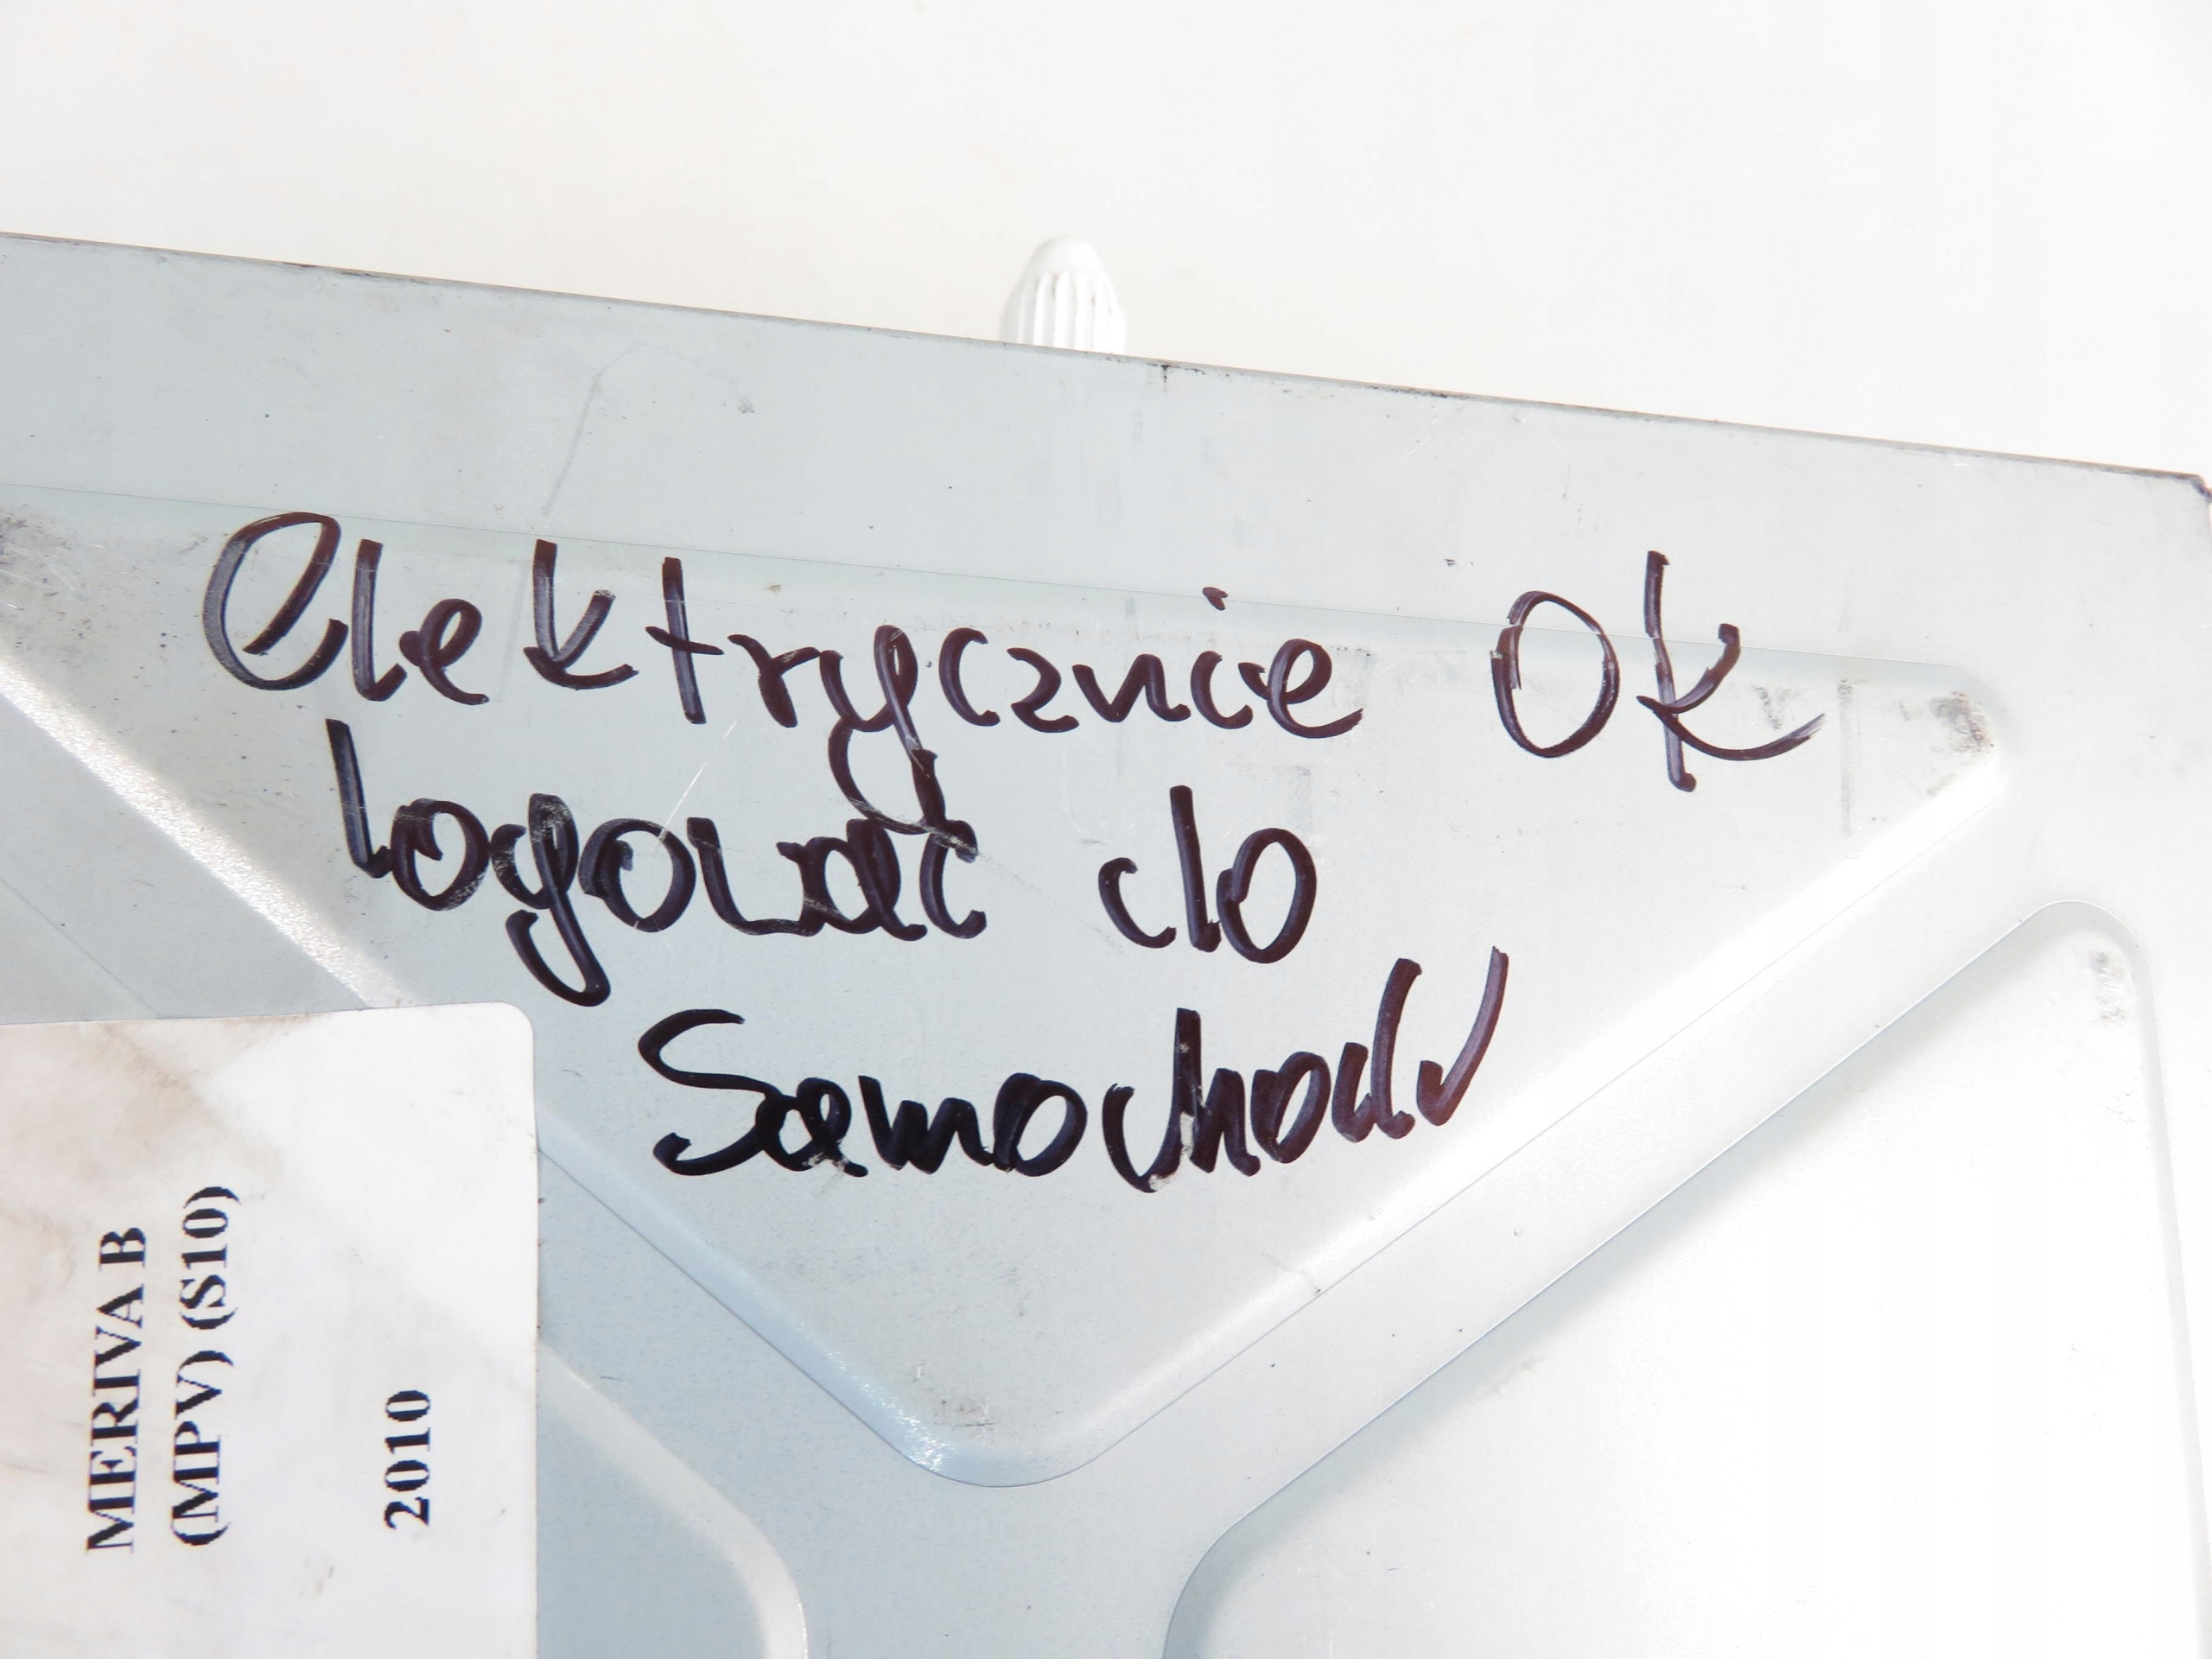 elektrycznie OK
Logować do
Samochodu
MERIVA B
(MPV) (S10)
2010